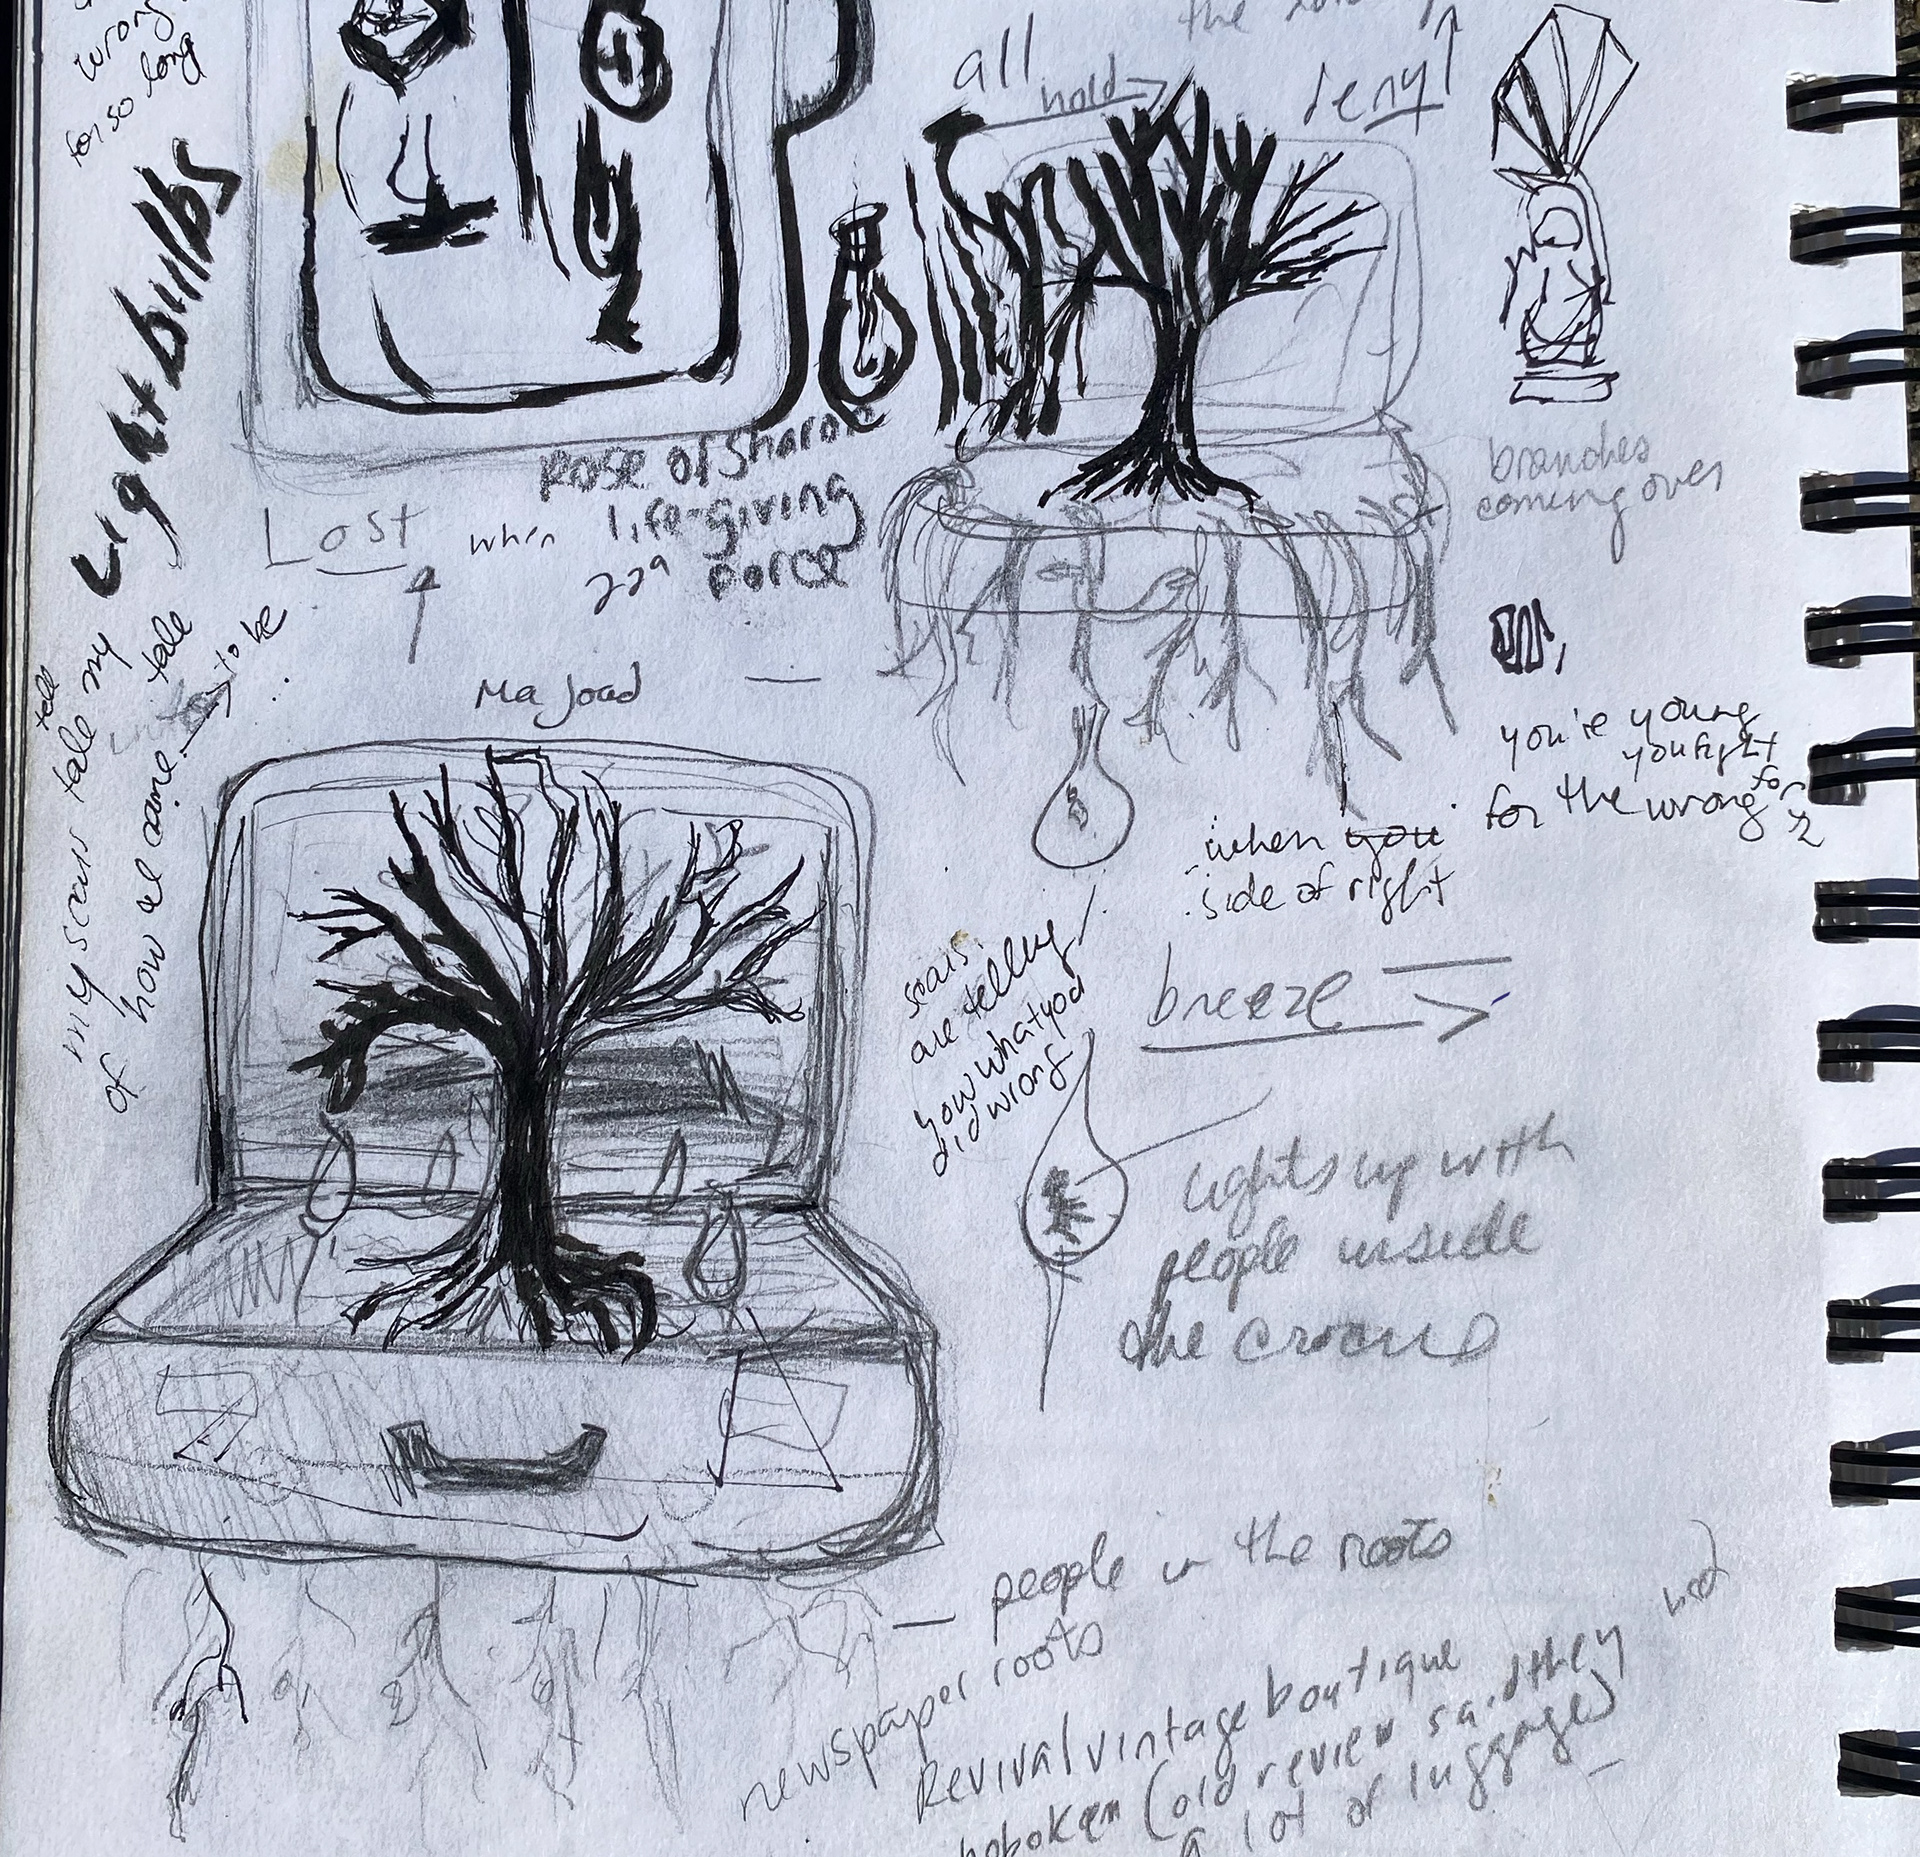 wrong
for so long
Lightbulbs
all
hold
the
deny
Rose of Sharon
life-giving
force
Lost
when
Ma Joad
branches
coming over
tell
my scars tale my tale
of how we came to be
...
you're young
you fight
for the wrong
for
when you
side of right
scars
are telling
you what you
did wrong
breeze
Lights up with
people inside
the crowd
— people in the roots
newspaper roots
Revival vintage boutique
hoboken (old review said they had
a lot of luggage)